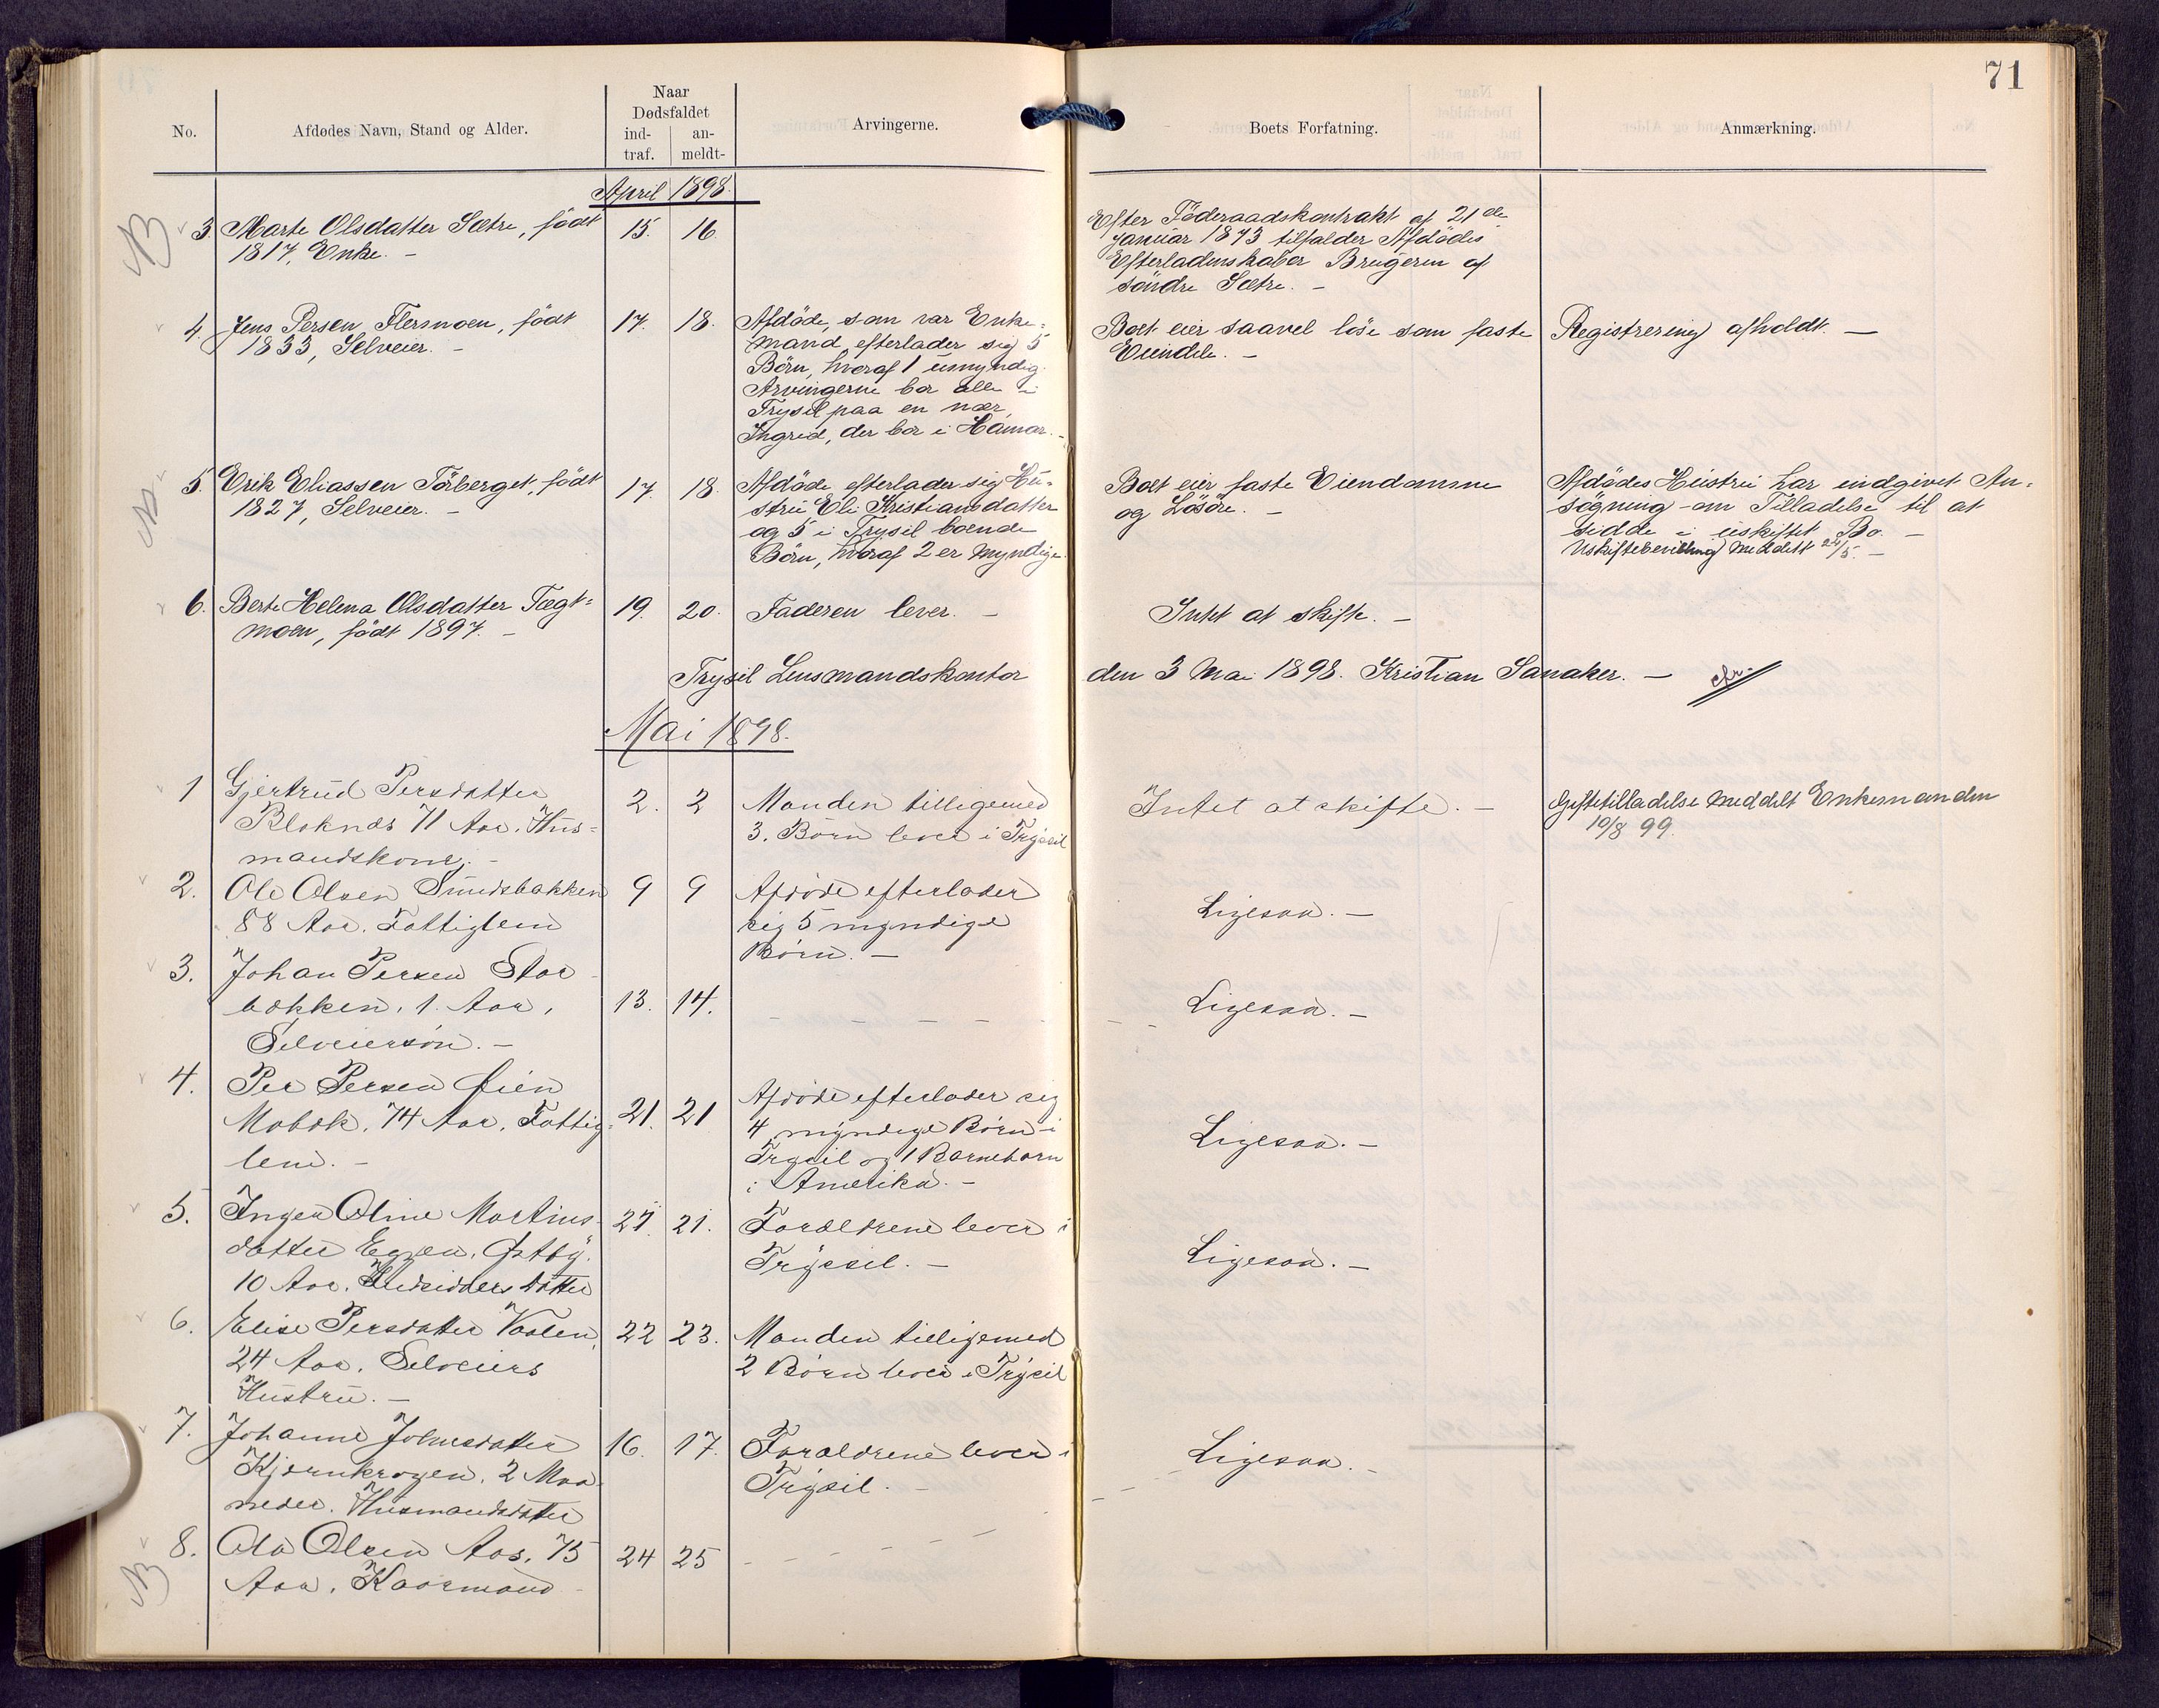 71
No.
Afdødes Navn, Stand og Alder.
Naar
Dødsfaldet
ind-
traf.
an-
meldt-
Arvingerne.
Boets Forfatning.
Anmærkning.
April 1898.
3. Marte Olsdatter Sætre, født
1817, Enke. -
15. 16.
Efter Föderaadskontrakt af 21de
Januar 1873 tilfalder Afdödes
Efterladenskaber Brugeren af
söndre Sætre. -
4. Jens Persen Flermoen, født
1833, Selveier. -
17. 18.
Afdöde, som var Enke-
mand, efterlader sig 5
Börn, hvoraf 1 umyndig.
Arvingerne bor alle i
Trysil paa en nær,
Ingrid, der bor i Hamar. -
Boet eier saavel löse som faste
Eiendele. -
Registrering afholdt. -
5. Erik Eliassen Törberget, født
1827, Selveier. -
17. 18.
Afdöde efterlader sig Hu-
stru Eli Kristiansdatter
og 5 i Trysil boende
Börn, hvoraf 2 er myndige.
Boet eier faste Eiendomme
og Lösöre. -
Afdödes Hustru har indgivet An-
sögning om Tilladelse til at
sidde i uskiftet Bo. -
Uskiftebevilling meddelt 24/5. -
6. Berte Helena Olsdatter Tægt-
moen, født 1897. -
19. 20.
Faderen lever. -
Intet at skifte. -
Trysil Lensmandskontor den 3 Mai 1898. Kristian Sanaker. -
Mai 1898.
1 Gjertrud Persdatter
Bloknæs 71 Aar. Hus-
mandskone. -
2. 2
Manden tilligemed
3. Børn lever i Trysil
Intet at skifte. -
Giftetilladelse meddelt Enkemanden
10/8 99.
2. Ole Olsen Smedsbakken
88 Aar. Fattiglem
9 9
Afdøde efterlader
sig 5 myndige
Børn. -
Ligesaa. -
3. Johan Persen Stor
bækken. 1. Aar,
Selveiersøn. -
13. 14.
Ligesaa. -
4. Per Persen
Mobæk. 74 Aar. Fattig-
lem. -
21. 21
Afdøde efterlader sig
4 myndige Børn i
Trysil og 1 Barnebarn
i Amerika. -
Ligesaa. -
5. Inger Oline Martins-
datter Egnen, Østby.
10 Aar. Indsidders datter
21. 21.
Forældrene lever i
Trysil. -
Ligesaa. -
6. Elise Persdatter Vaalen,
24 Aar. Selveiers
Hustru. -
22 23.
Manden tilligemed
2 Børn lever i Trysil
7. Johanne Johnsdatter
Kjernkrogen. 2 Maa-
neder. Husmandsdatter
16. 17.
Forældrene lever i
Trysil. -
Ligesaa. -
8. Ola Olsen Aas, 75
Aar. Kaarmand
24 25